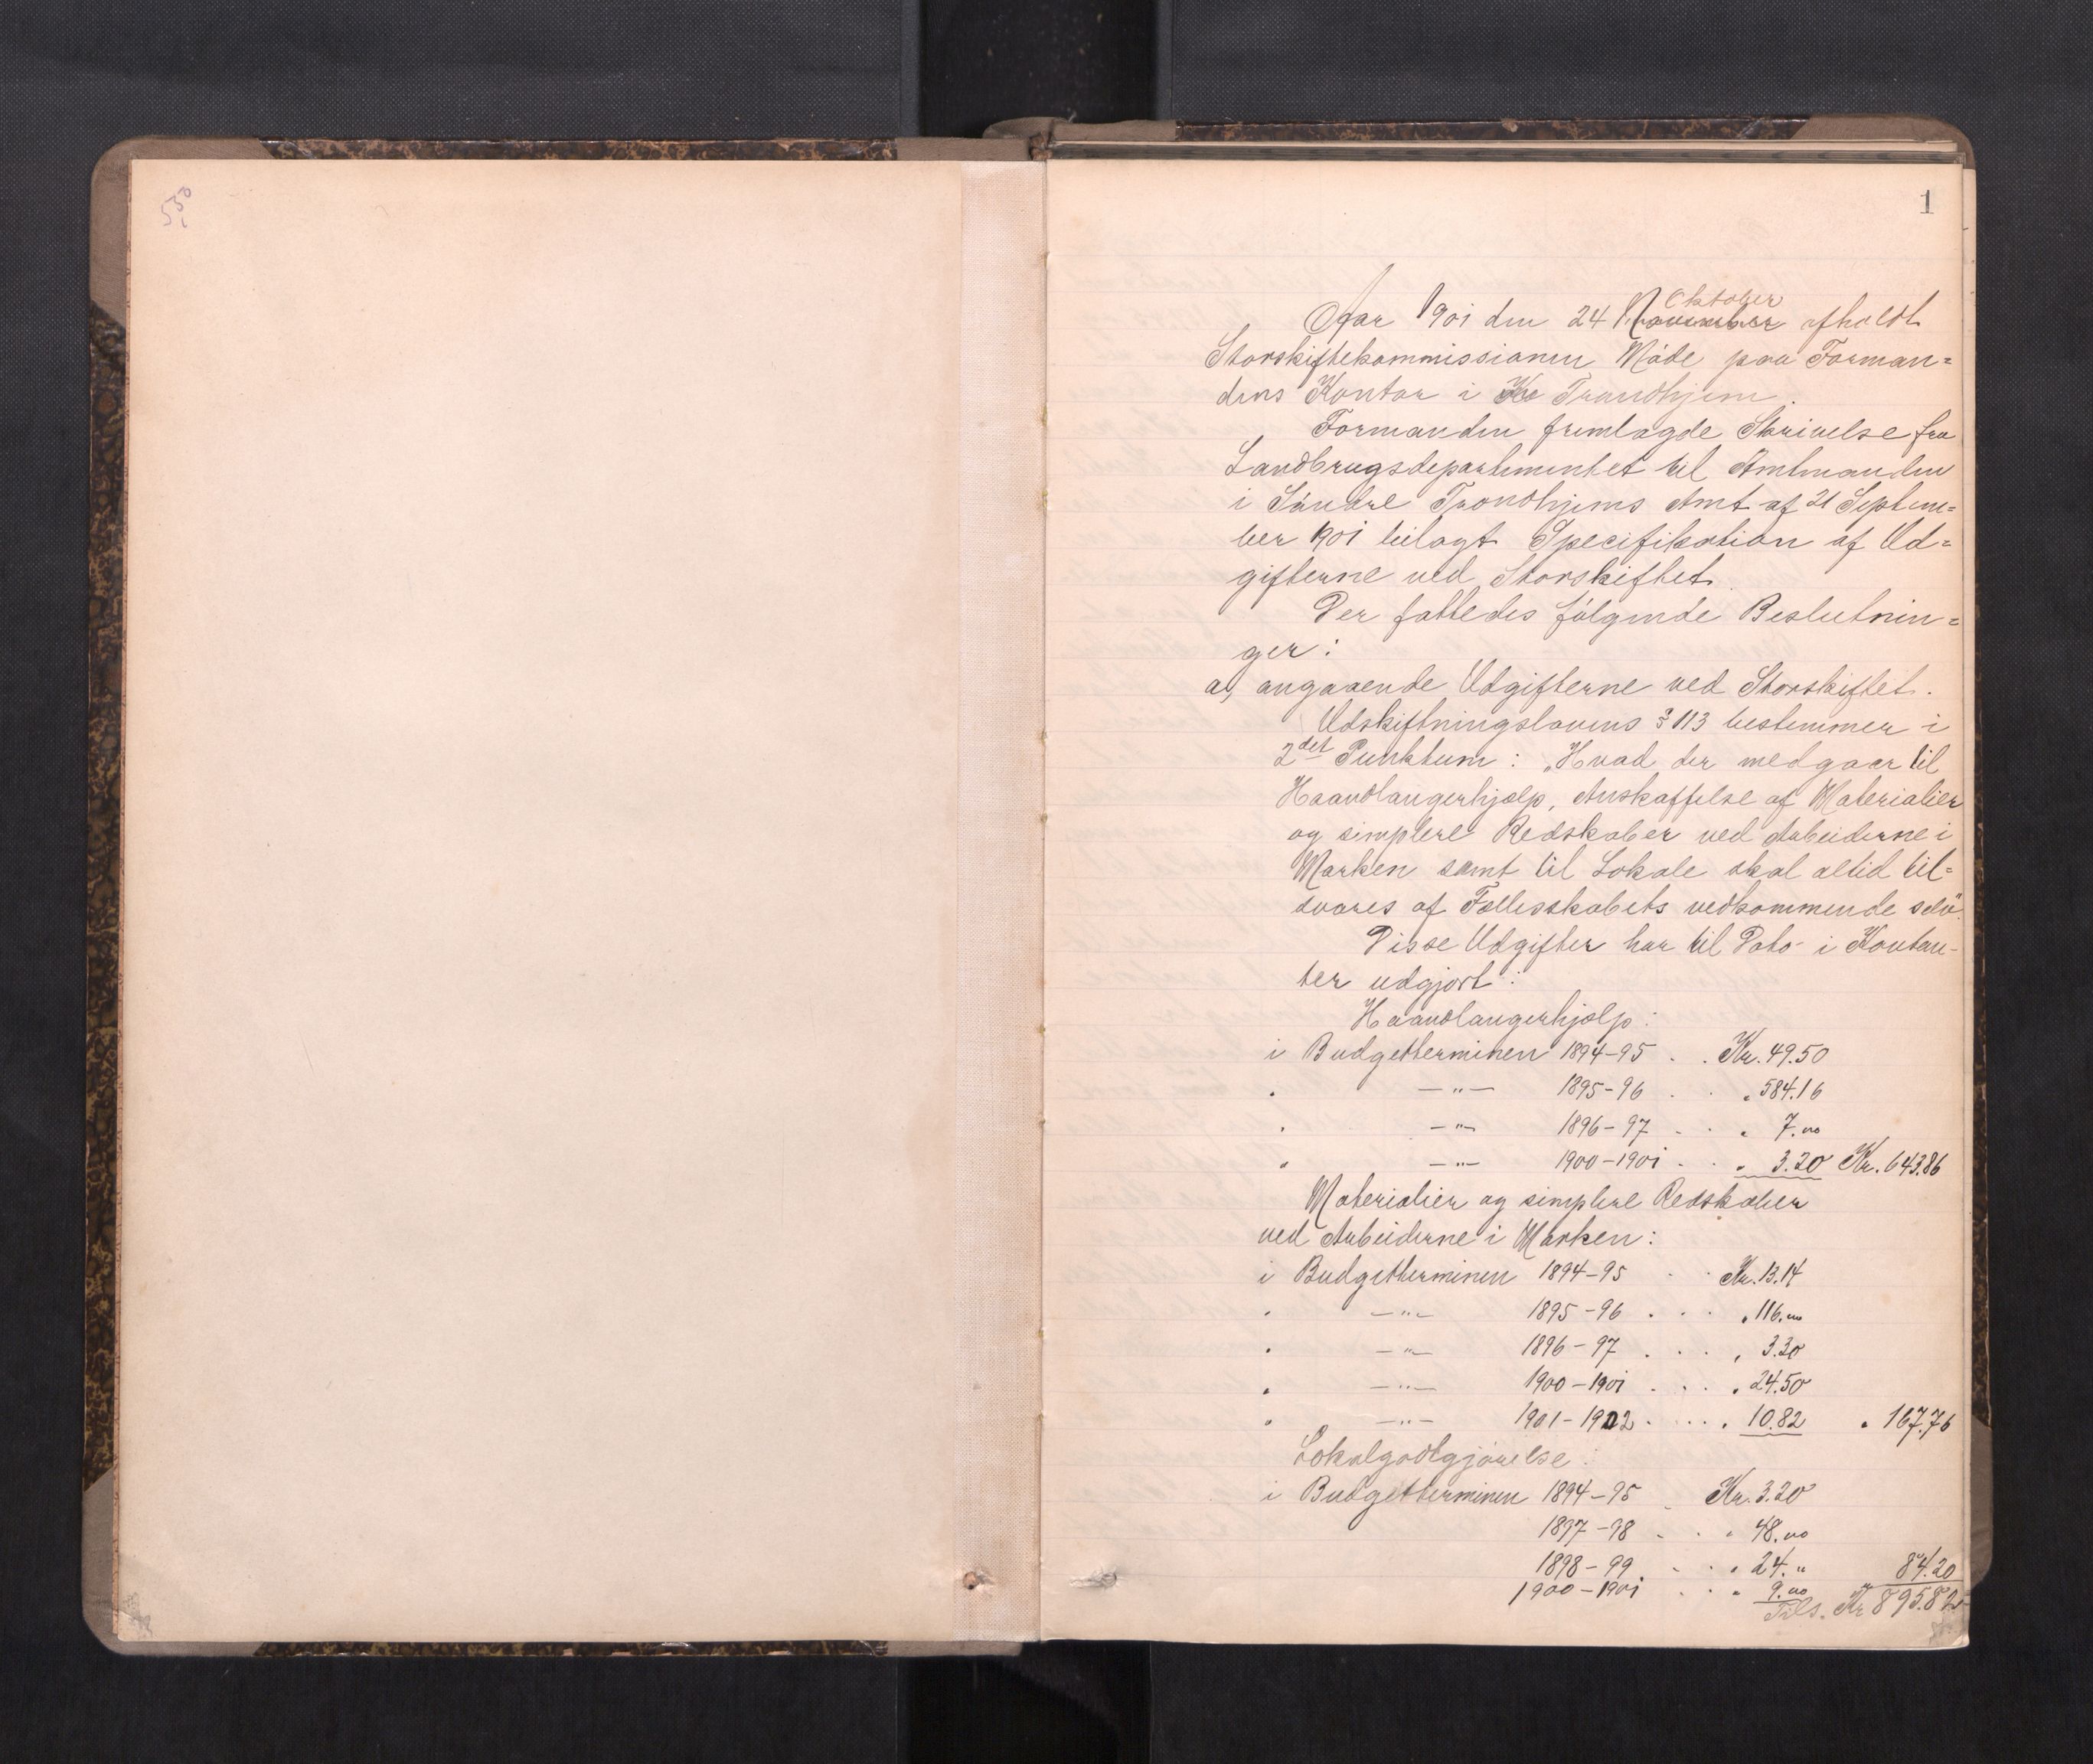 5.50
1
Aar 1901 den 24 November Oktober afholdt
Storskiftekommissionen Möde paa Forman=
dens Kontor i Kr Trondhjem.
Formanden fremlagde Skrivelse fra
Landbrugsdepartementet til Amtmanden
i Söndre Trondhjems Amt af 21 Septem=
ber 1901 bilagt Specifikation af Ud=
gifterne ved Storskiftet.
Der fattedes fölgende Beslutnin=
ger:
a, angaaende Udgifterne ved Storskiftet.
Udskiftningslovens § 113 bestemmer i
2det Punktum: „Hvad der medgaar til
Haandlangerhjælp, Anskaffelse af Materialier
og simplere Redskaber ved Arbeiderne i
Marken samt til Lokale skal altid til=
svares af Fællesskabets vedkommende selv".
Disse Udgifter har til Dato i Kontan-
ter udgjort:
Haandlangerhjælp:
i Budgetterminen 1894-95 . . Kr. 49.50
" —"— 1895-96 . . " 584.16
" —"— 1896-97 . . " 7.00
" —"— 1900-1901 . . " 3.20 Kr. 643.86
Materialier og simplere Redskaber
ved Arbeiderne i Marken:
i Budgetterminen 1894-95 . . Kr. 13.14
" —"— 1895-96 . . . " 116.00
" —"— 1896-97 . . . " 3.30
" —"— 1900-1901 . . . " 24.50
" —"— 1901-1902 . . . " 10.82 " 167.76
Lokalgodtgjörelse:
i Budgetterminen 1894-95 . Kr. 3.20
1897-98 . . " 48.00
1898-99 . . " 24." 
1900-1901 . . " 9.00 " 84.20
Tils. Kr 895.82